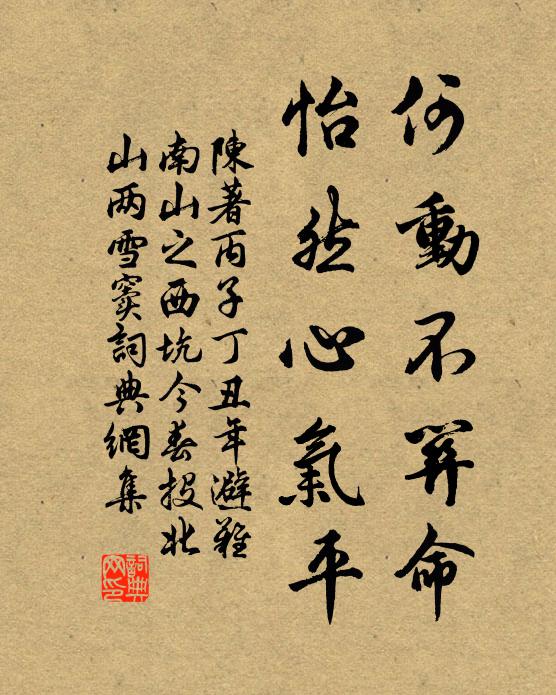 何動不算命
怡然心氣平
陳著丙子丁丑年避難
南山之西坑今春投北
山两雪竇詞典網集
詞典網印